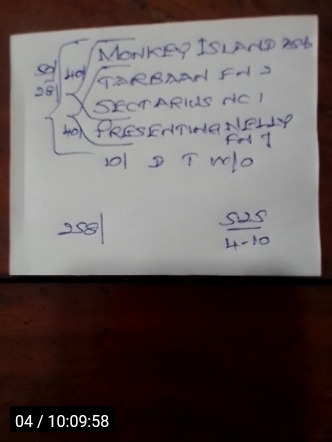 MONKEY ISLAND 256
50/ 40/ TARBAAN FN 2
28/ SECTARIUS NC 1
40/ PRESENTING NELLY
FN 7
10/ D T W/O
258/
525
4-10
04 / 10:09:58